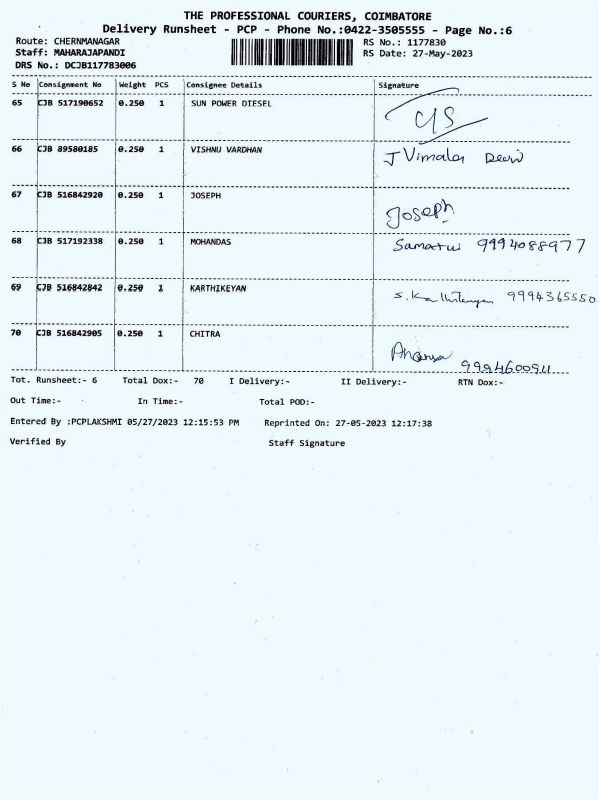 THE PROFESSIONAL COURIERS, COIMBATORE
Delivery Runsheet - PCP - Phone No.:0422-3505555 - Page No.:6
Route: CHERNMANAGAR RS No.: 1177830
Staff: MAHARAJAPANDI RS Date: 27-May-2023
DRS No.: DCJB117783006
S No Consignment No Weight PCS Consignee Details Signature
65 CJB 517190652 0.250 1 SUN POWER DIESEL
66 CJB 89580185 0.250 1 VISHNU VARDHAN J Vimala Devi
67 CJB 516842920 0.250 1 JOSEPH Joseph
68 CJB 517192338 0.250 1 MOHANDAS 9994088977
69 CJB 516842842 0.250 1 KARTHIKEYAN 9994365550
70 CJB 516842905 0.250 1 CHITRA
Tot. Runsheet:- 6 Total Dox:- 70 I Delivery:- II Delivery:- RTN Dox:-
Out Time:- In Time:- Total POD:-
Entered By :PCPLAKSHMI 05/27/2023 12:15:53 PM Reprinted On: 27-05-2023 12:17:38
Verified By Staff Signature